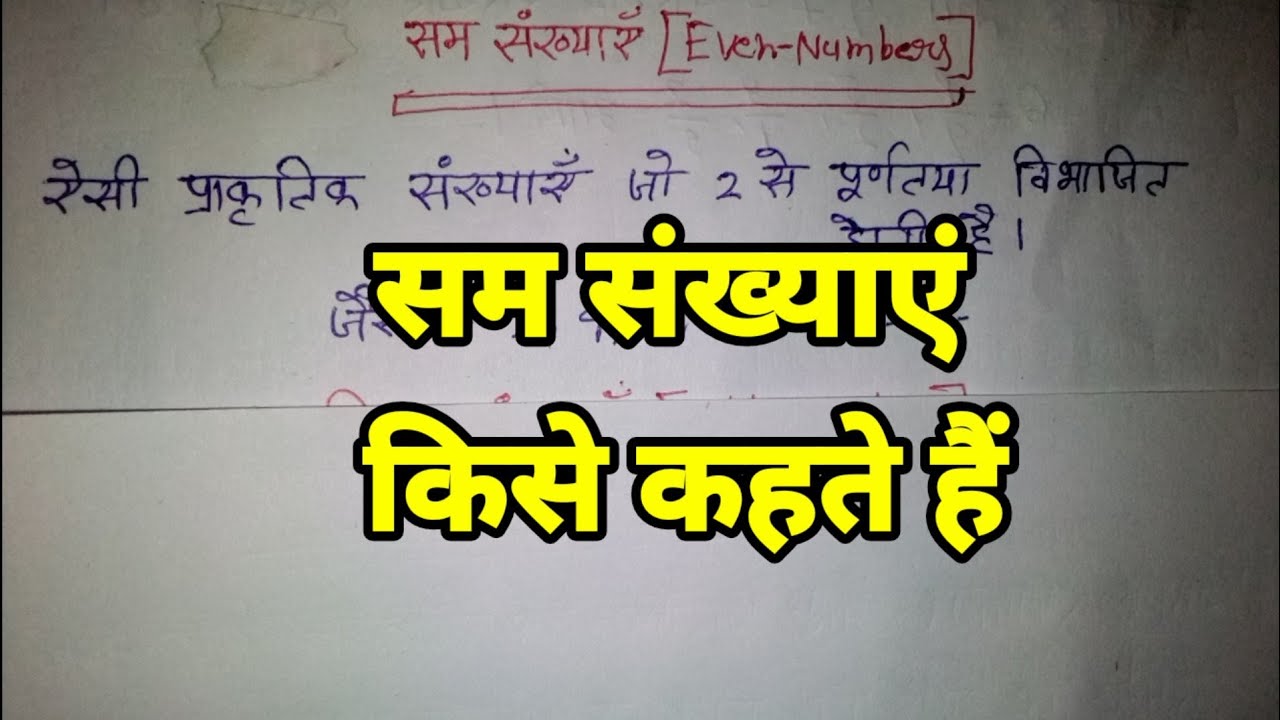 सम संख्याएँ [Even-Numbers]
ऐसी प्राकृतिक संख्याएँ जो 2 से पूर्णतया विभाजित
है।
सम संख्याएं
किसे कहते हैं